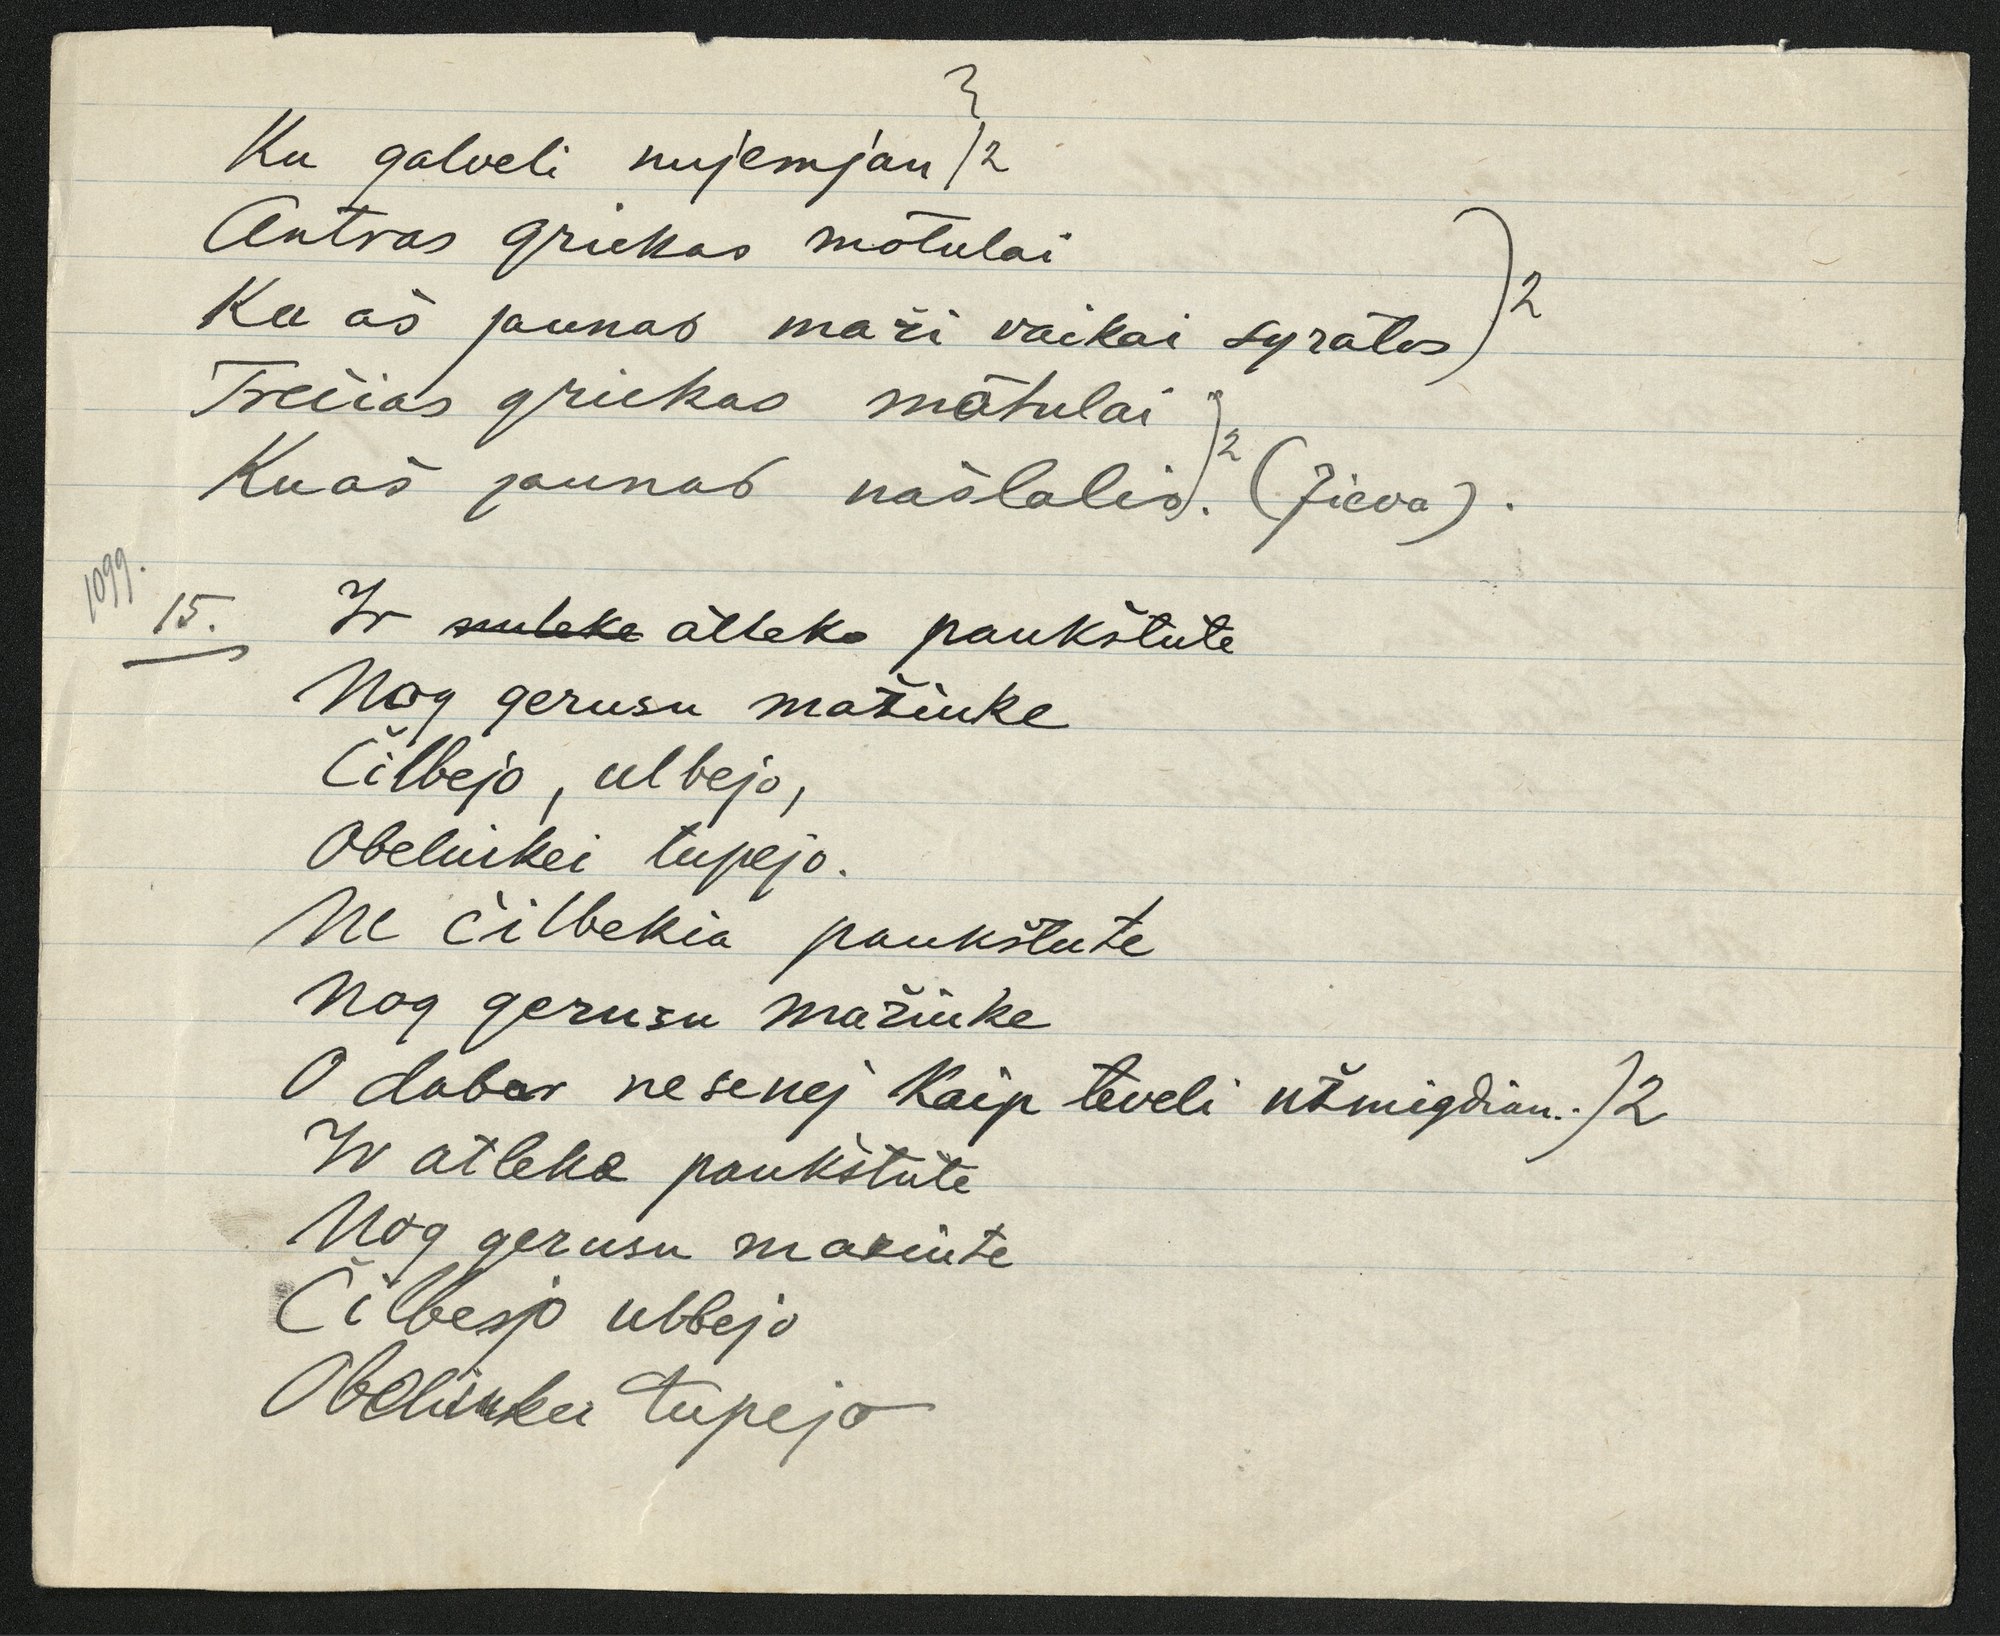 Ku galveli nujemjau )2
Antras griekas motulai
Ku aš jaunas maži vaikai syratos )2
Trečias griekas motulai
Ku aš jaunas našlalis. )2 (Zieva).
1099.
15. Ir nuleke atleke paukštute
Nog gerusu mažinke
Čilbejo, ulbejo,
Obelinkei tupejo.
Ne čilbekia paukštute
Nog gerusu mažinke
O dabar nesenej kaip teveli užmigdiau.. )2
Ir atleke paukštute
Nog gerusu mažinte
Čilbesjo ulbejo
Obelinkei tupejo